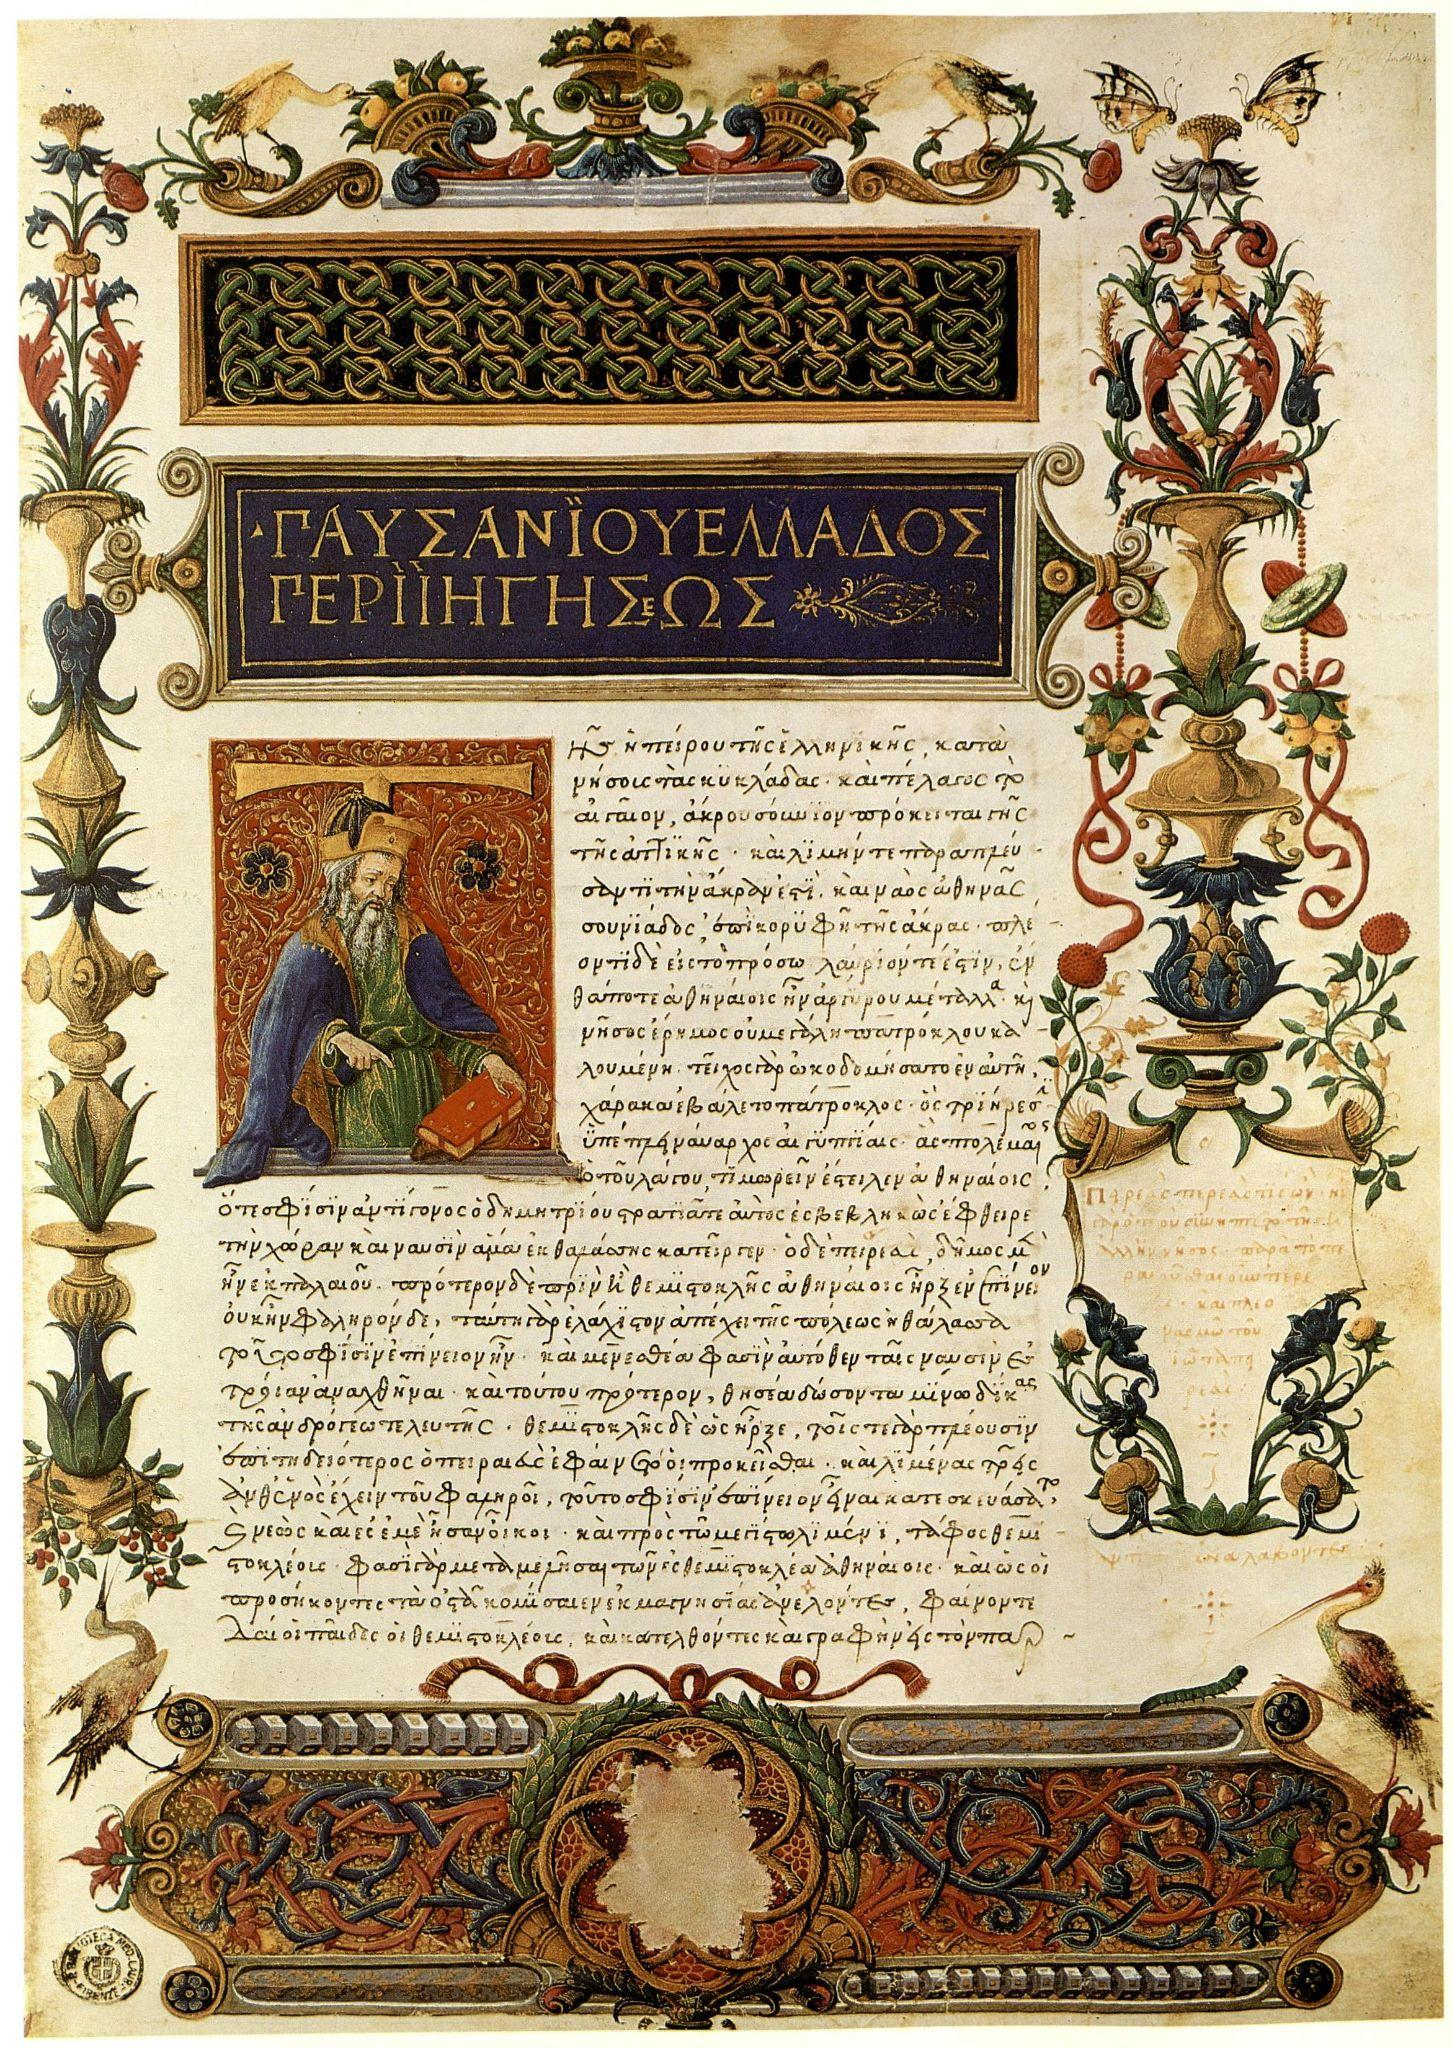 ΠΑΥΣΑΝΪΟΥ ΕΛΛΑΔΟΣ
ΠΕΡΙΗΓΗΣΕΩΣ
τῆς ἠπείρου τῆς ἑλληνικῆς, κατὰ
νήσους τὰς κυκλάδας· καὶ πέλαγος τὸ
αἰγαῖον, ἄκρα σούνιον πρόκειται γῆς
τῆς ἀττϊκῆς· καὶ λιμήν τε παραπλεύ
σαντι τὴν ἄκραν ἐστὶ, καὶ ναὸς ἀθηνᾶς
σουνϊάδος ἐπὶ κορϋφῆ τῆς ἄκρας· πλέ
οντϊ δὲ εἰς τὸ πρόσω λαύριόν τέ ἐστϊν, ἔν
θα ποτὲ ἀθηναίοις ἦν ἀργύρου μέταλλα· καὶ
νῆσος ἔρημος οὐ μεγάλη πατρόκλου κα
λουμένη· τεῖχος γὰρ ὠκοδομήσατο ἐν αὐτῆ,
χάρακα ἐβάλετο πάτροκλος· ὃς τριήρεσϊ
ὑπέπλει ναύαρχος αἰγϋπτίαις· ἃς πτολεμαῖος
ὁ τοῦ λάγου, τιμωρεῖν ἔστειλεν ἀθηναίοις,
ὅτε σφίσϊν ἀντίγονος ὁ δημητρίου στρατιᾶ τε αὐτὸς ἐσβεβληκὼς ἔφθειρε
τὴν χώραν καὶ ναυσὶν ἅμα ἐκ θαλάσσης κατεῖργεν· ὁ δὲ πειραιεὺς δῆμος μὲν
ἦν ἐκ παλαιοῦ· πρότερον δὲ πρὶν ἢ θεμϊστοκλῆς ἀθηναίοις ἦρξεν ἐπίνειον
οὐκ ἦν φαληρὸν δέ, ταύτη γὰρ ἐλάχϊστον ἀπέχει τῆς πόλεως ἡ θάλασσα
τοῦτο σφίσϊν ἐπίνειον ἦν· καὶ μενεσθέα φασὶν αὐτόθεν ταῖς ναυσὶν ἐς
τροίαν ἀναχθῆναι· καὶ τούτου πρότερον, θησέα δώσοντα μίνω δίκας
τῆς ἀνδρόγεω τελευτῆς· θεμϊστοκλῆς δὲ ὡς ἦρξε, τοῖς τε γὰρ πλέουσϊν
ἐπϊτηδειότερος ὁ πειραιεὺς ἐφαίνετό οἱ προκεῖσθαι· καὶ λϊμένας τρεῖς
ἀνθ' ἑνὸς ἔχειν τοῦ φαληροῖ, τοῦτο σφίσϊν ἐπίνειον εἶναι κατεσκευάσατο·
νεὼς καὶ ἐς ἐμὲ ἦσαν οἶκοι· καὶ πρὸς τῶ μεγίστω λϊμένϊ, τάφος θεμϊ
στοκλέοις· φασὶ γὰρ μεταμελῆσαι τῶν ἐς θεμϊστοκλέα ἀθηναίοις· καὶ ὡς οἱ
προσήκοντες τὰ ὀστᾶ κομίσαιεν ἐκ μαγνησίας ἀνελόντες, φαίνονται
δὲ οἱ παῖδες οἱ θεμϊστοκλέοις, καὶ κατελθόντες καὶ γραφὴν ἐς τὸν παρ